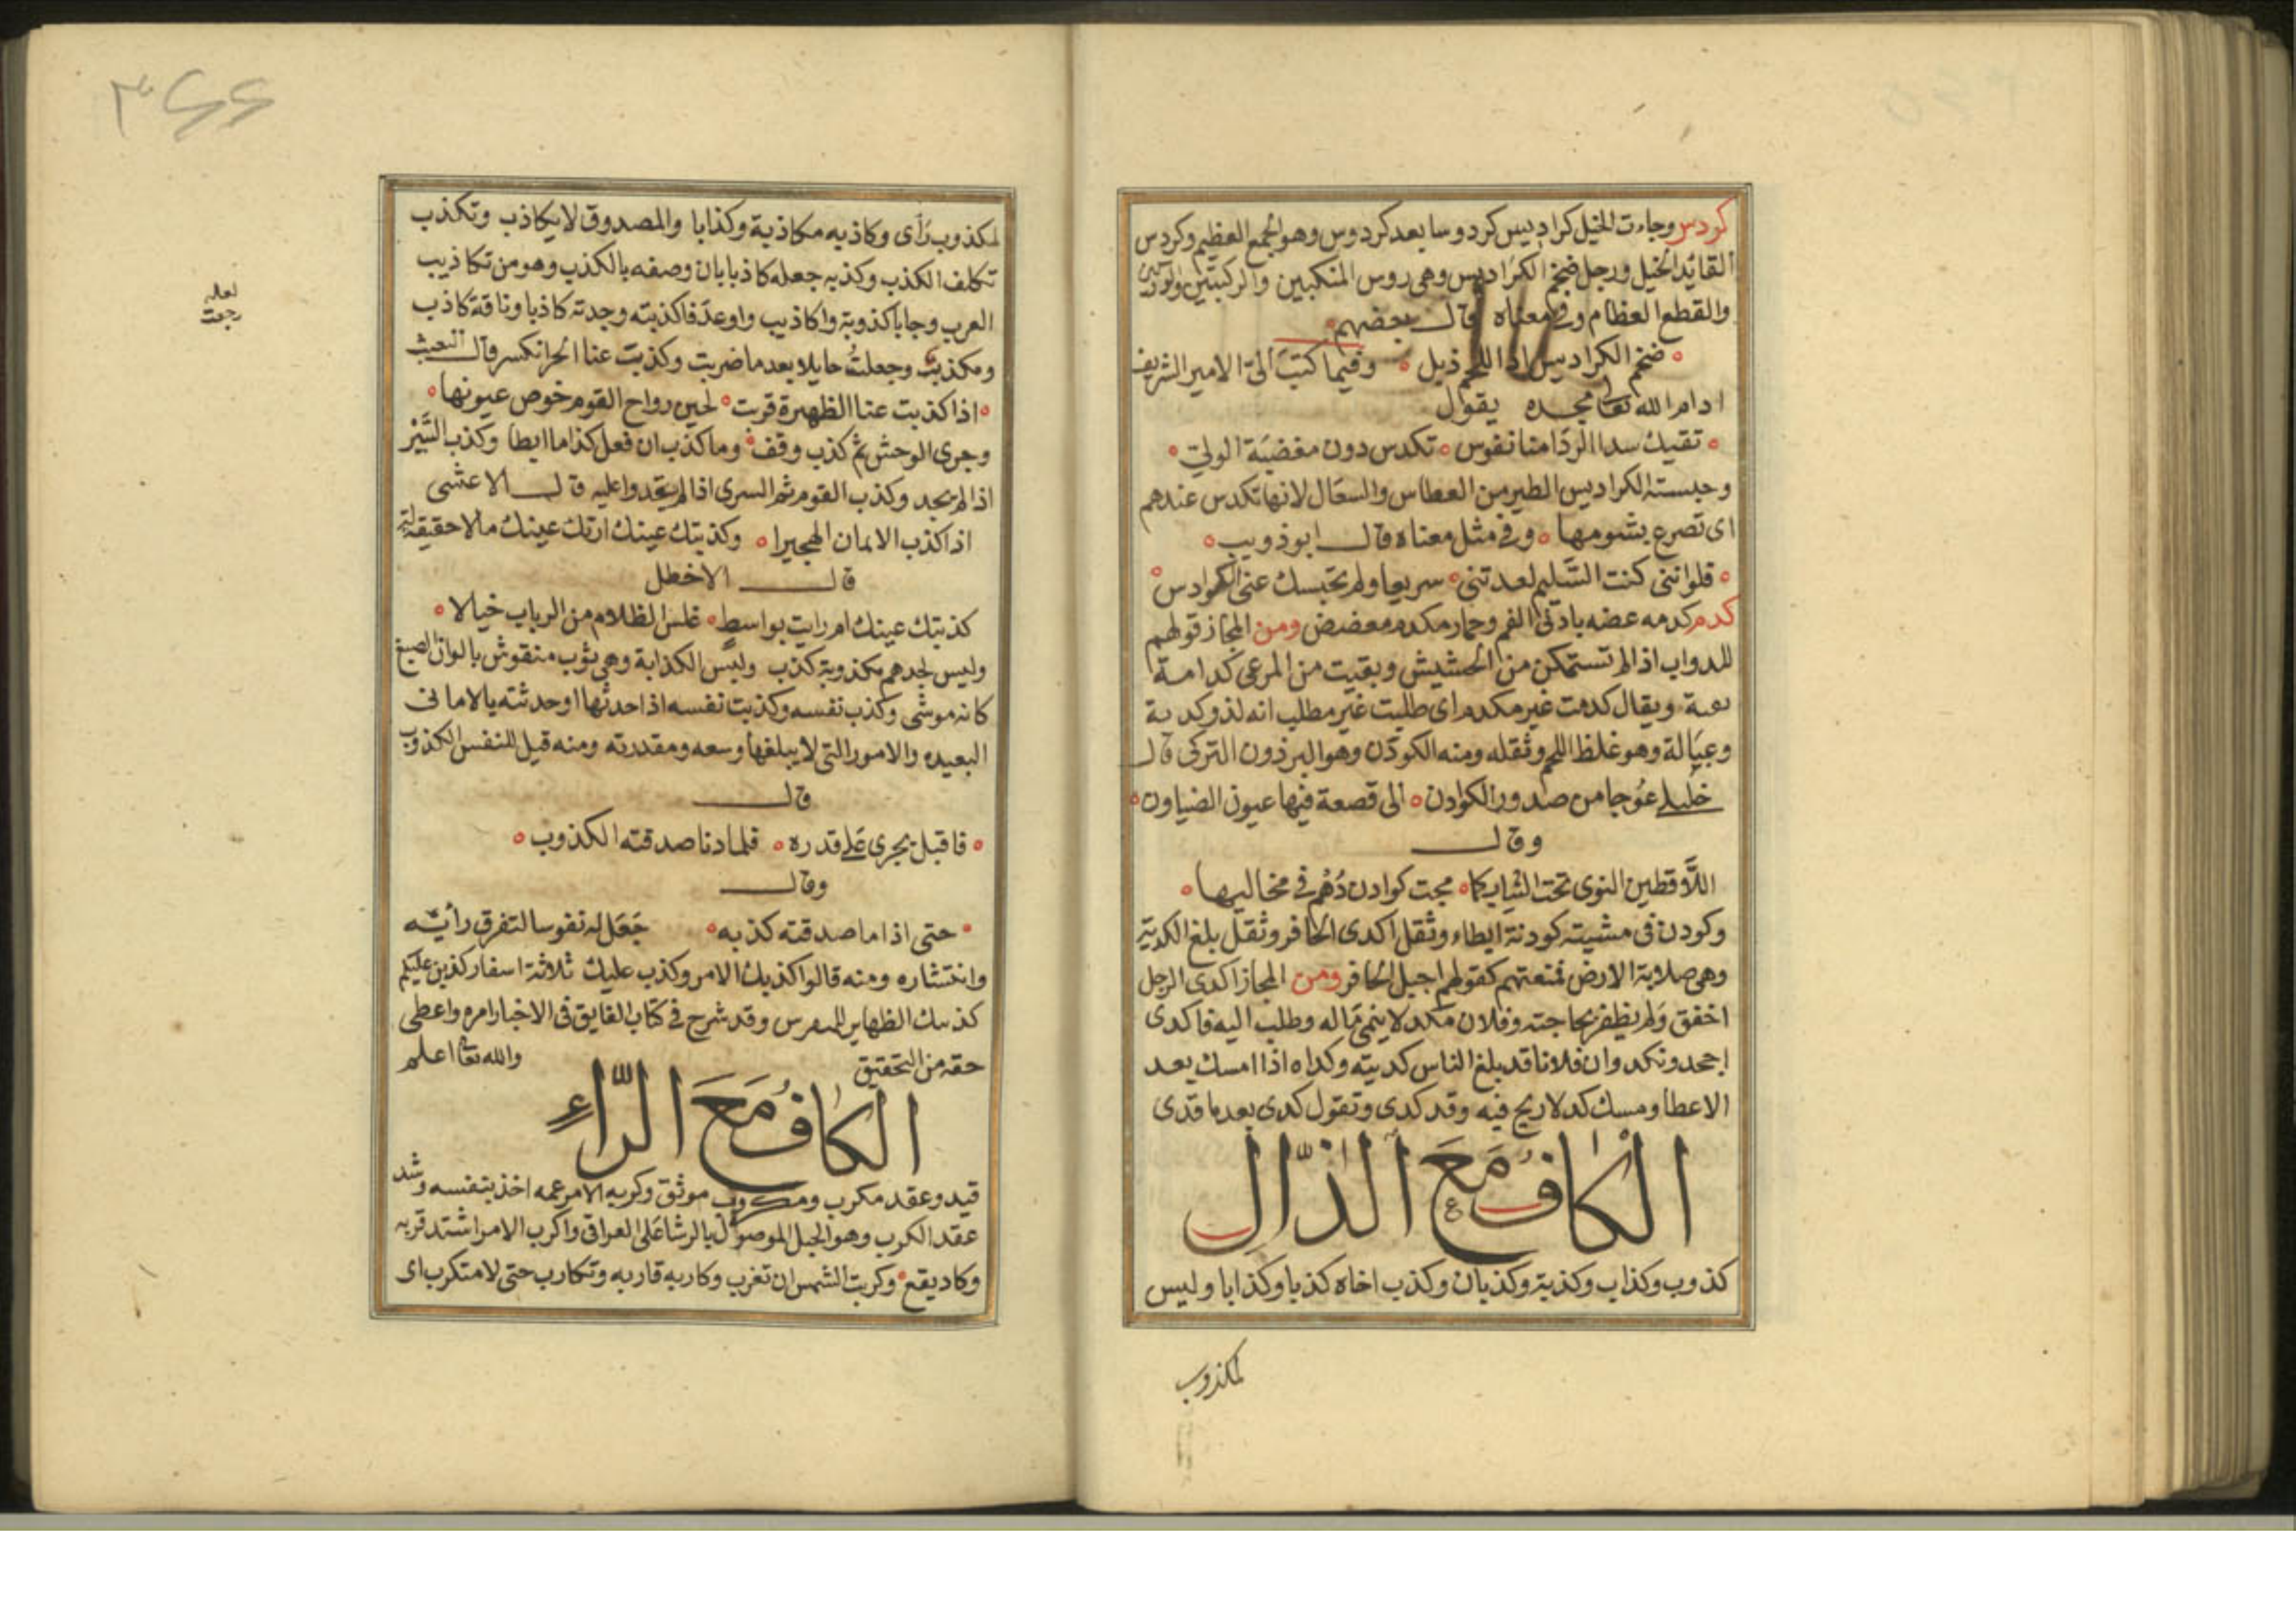 كردس وجاءت الخيل كراديس كردوسا بعد كردوس وهو الجمع العظيم وكردس
القائد الخيل ورجل ضخم الكراديس وهى روس المنكبين والركبتين والوركين
والقطع العظام وفى معناه قال بعضهم
ضخم الكراديس اذا اللحم ذبل وفيما كتب الىّ الامير الشريف
ادام الله تعالى مجده يقول
تقيك سدا الردا منا نفوس تكدس دون مغضبة الولي
وحبسته الكراديس الطير من العطاس والسعال لانها تكدس عندهم
اى تصرع بشومها وفى مثل معناه قال ابو ذويب
فلو اننى كنت السليم لعدتنى سريعا ولم تحبسك عنى الكوادس
كدم كدمه عضه بادنى الفم وحمار مكدم معضض ومن المجاز قولهم
للدواب اذا لم تستمكن من الحشيش وبقيت من المرعى كدامة
ويقال كدمت غير مكدم اى طلبت غير مطلب انه لذو كدنة
وعبالة وهو غلظ اللحم وثقله ومنه الكودن وهو البرذون التركى قال
خليلى عوجا من صدور الكوادن الى قصعة فيها عيون الضياون
وقال
اللاقطين النوى تحت الثياب كما مجت كوادن دُهْم فى مخاليها
وكودن فى مشيته كودنة ابطاء وثقل اكدى الحافر وثقل بلغ الكدية
وهى صلابة الارض فمنعتهم كقولهم اجبل الحافر ومن المجاز اكدى الرجل
اخفق ولم يظفر بحاجته وفلان مكد لا ينمى ماله وطلب اليه فاكدى
اجحد ونكد وان فلانا قد بلغ الناس كديته وكداه اذا امسك بعد
الاعطا ومسك كد لا ريح فيه وقد كدى وتقول كدى بعد ما قدى
الكاف مع الذال
كذوب وكذاب وكذبة وكذبان وكذب اخاه كذبا وكذابا وليس
لمكذوب
٣٦٦
لمكذوب رأى وكاذبه مكاذبة وكذابا والمصدوق لا يكاذب وتكذب
تكلف الكذب وكذبه جعله كاذبا بان وصفه بالكذب وهو من تكاذيب
العرب وجا باكذوبة واكاذيب واوعد فاكذبته وجدته كاذبا وناقة كاذب
ومكذب وجعلت حايلا بعد ما ضربت وكذبت عنا الحر انكسر قال البعيث
لعله
رجعت
اذا كذبت عنا الظهيرة قربت لحين رواح القوم خوص عيونها
وجرى الوحش ثم كذب وقف وما كذب ان فعل كذا ما ابطا وكذب السير
اذا لم يجد وكذب القوم السرى اذا لم يقدوا عليه قال الاعشى
اذا كذب الاثمات الهجيرا وكذبتك عينك ارتك عينك ما لا حقيقة له
قال الاخطل
كذبتك عينك ام رايت بواسط غلس الظلام من الرباب خيالا
وليس لجدهم مكذوبة كذب ولبس الكذابة وهى ثوب منقوش بالوان الصبغ
كانه موشى وكذب نفسه وكذبت نفسه اذا حدثها او حدثته بالامانى
البعيده والامور التى لا يبلغها وسعه ومقدرته ومنه قيل للنفس الكذوب
قال
فاقبل يجرى على قدره فلما دنا صدقته الكذوب
وقال
حتى اذا ما صدقته كذبه جعل له نفوسا لتفرق رأيه
وانتشاره ومنه قالوا كذبك الامر وكذب عليك ثلاثة اسفار كذبن عليكم
كذبتك الظهاير وقد شرح فى كتاب الفايق فى الاخبار امره واعطى
حقه من التحقيق والله تعالى اعلم
الكاف مع الراء
قيد وعقد مكرب ومكروب موثق وكربه الامر غمه اخذ بنفسه وشد
عقد الكرب وهو الحبل الموصول بالرشا على العراقى واكرب الامر اشتد قربه
وكاد يقع وكربت الشمس ان تغرب وكاربه قاربه وتكارب حتى لا متكرب اى